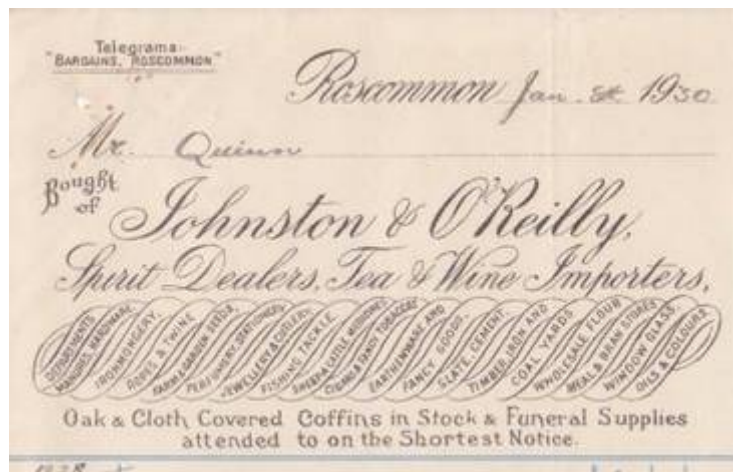 Telegrams:-
"BARGAINS, ROSCOMMON"
Roscommon Jan. 8th 1930
Mr. Quinn
Bought of
Johnston & O'Reilly,
Spirit Dealers, Tea & Wine Importers,
DEPARTMENTS
MANURES, HARDWARE,
IRONMONGERY,
ROPES & TWINE
FARM & GARDEN SEEDS,
PERFUMERY, STATIONERY
JEWELLERY & CUTLERY,
FISHING TACKLE,
SHEEP & CATTLE MEDICINES
CIGARS & FANCY TOBACCOS
EARTHENWARE AND
FANCY GOODS,
SLATE, CEMENT,
TIMBER, IRON AND
COAL YARDS
WHOLESALE FLOUR
MEAL & BRAN STORES
WINDOW GLASS,
OILS & COLOURS.
Oak & Cloth Covered Coffins in Stock & Funeral Supplies
attended to on the Shortest Notice.